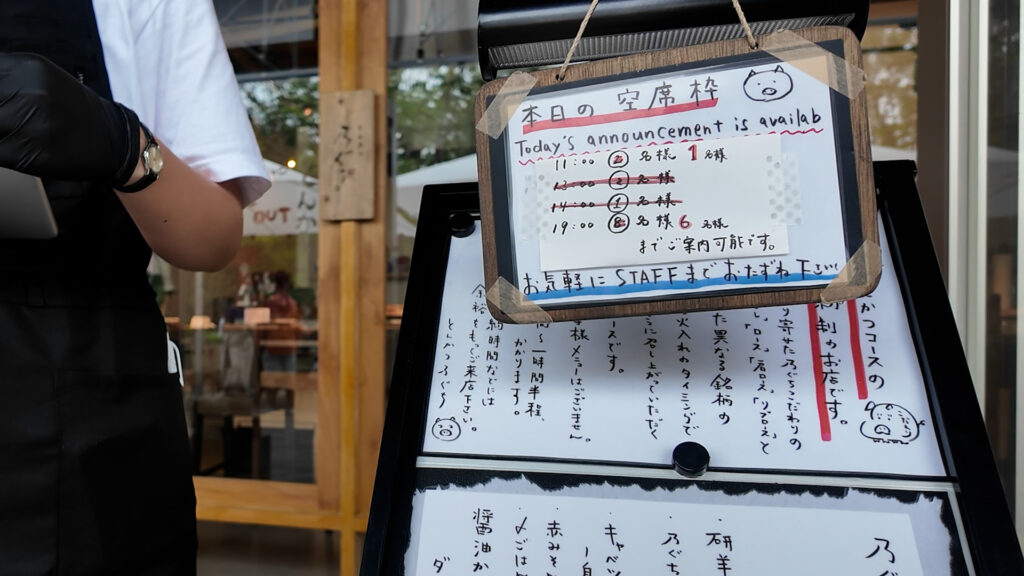 本日の 空席枠
Today's announcement is availab
11:00 ② 名様 1 名様
13:00 ② 名様
14:00 ① 名様
19:00 ⑧ 名様 6 名様
までご案内可能です。
お気軽に STAFFまでおたずね下さい
かつコースの
制のお店です。
り寄せた乃ぐちこだわりの
た異なる銘柄の
火入れのタイミングで
召し上がっていただく
ズです。
様メニューはございません。
間〜一時間半程、
かかります。
約時間などは
余裕をもってご来店下さい。
とんかつ乃ぐち
乃ぐ
研羊
乃ぐち
キャベツ
赤みそ
〆ごは
醤油か
ダ
OUT